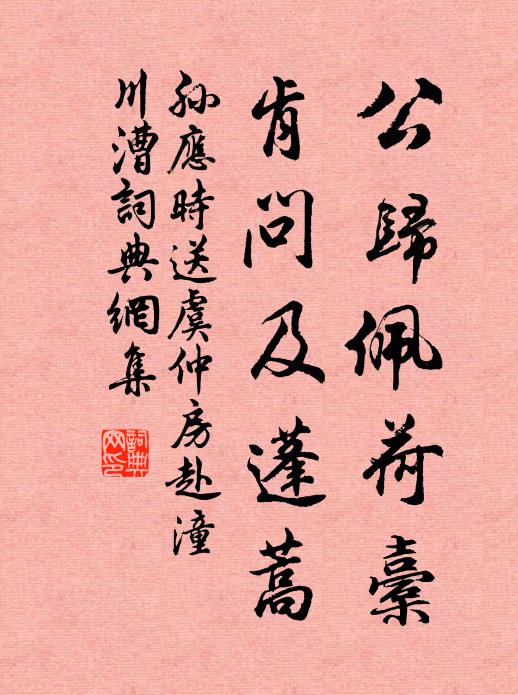 公歸佩荷橐
肯問及蓬蒿
孫應時送虞仲房赴潼
川漕詞典網集
詞典
网印